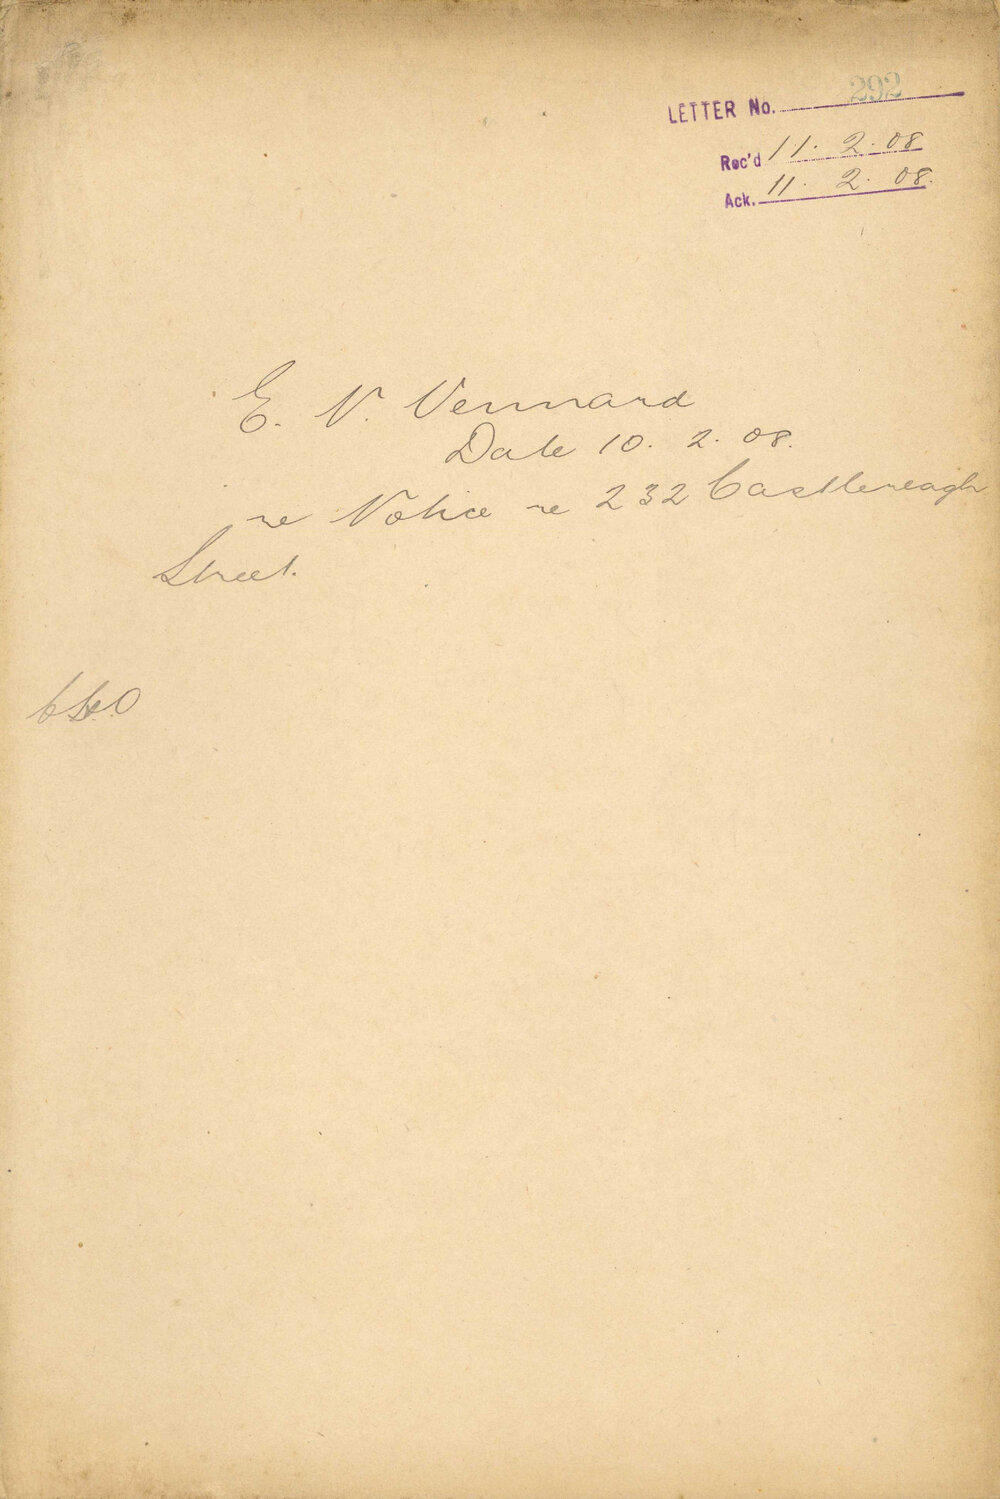 LETTER No. 292
Rec'd 11. 2. 08
Ack. 11. 2. 08.
E. V. Vennard
Date 10. 2. 08.
re Notice re 232 Castlereagh
Street.